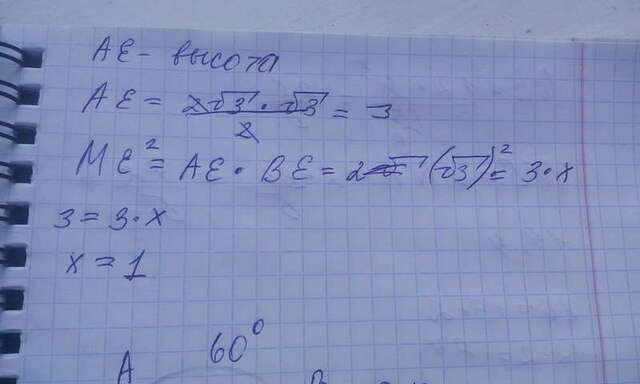 AE - высота
AE = 2√3 · √3 / 2 = 3
ME² = AE · BE = (√3)² = 3 · x
3 = 3 · x
x = 1
60°
A